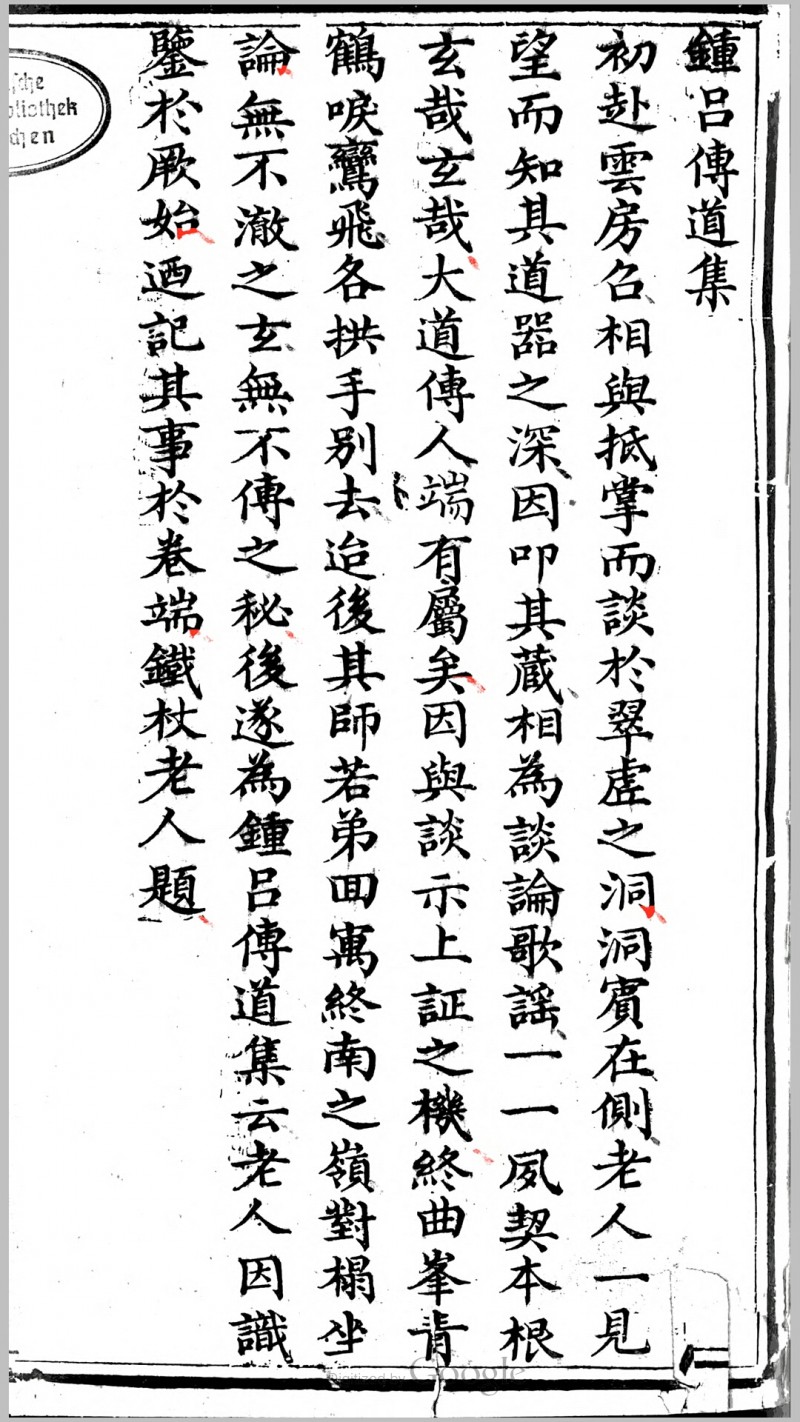 鍾呂傳道集
初赴雲房召相與抵掌而談於翠虛之洞洞賓在側老人一見
望而知其道器之深因叩其蔵相為談論歌謡一一夙契本根
玄哉玄哉大道傳人端有屬矣因與談示上証之機終曲峯青
鶴唳鸞飛各拱手別去迨後其師若弟回寓終南之嶺對榻坐
論無不澈之玄無不傳之秘後遂為鍾呂傳道集云老人因識
鑒於厥始迺記其事於卷端鐵杖老人題
Digitized by Google